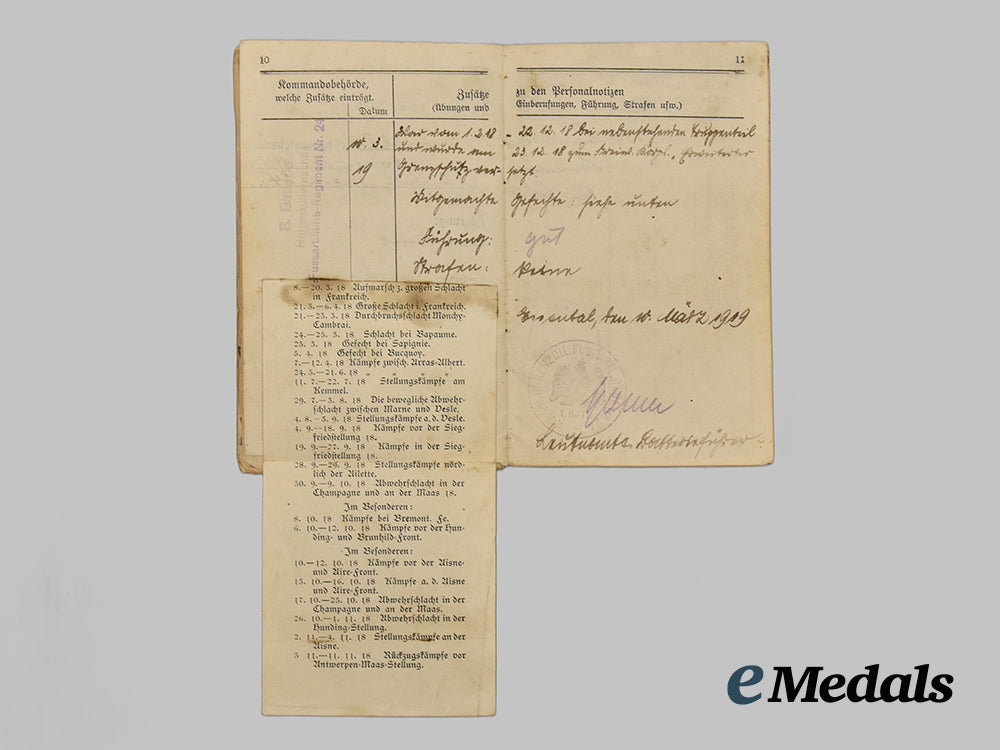 10
Kommandobehörde,
welche Zusätze einträgt.
Datum
Zusätze
(Übungen und
11
zu den Personalnotizen
Einberufungen, Führung, Strafen usw.)
8. Batterie
Fussartillerie-Regiment Nr. 24
10. 3.
19
War vom 1.2.18 - 22.12.18 bei nebenstehendem Truppenteil
und wurde am 23.12.18 zum Freiw. Korps „Erweiterter
Grenzschutz ver- setzt.
Mitgemachte Gefechte: siehe unten
Führung: gut
Strafen: keine
den 10. März 1919
Leutnant u. Batterieführer
8.—20. 3. 18 Aufmarsch z. großen Schlacht
in Frankreich.
21. 3.—6. 4. 18 Große Schlacht i. Frankreich.
21.—23. 3. 18 Durchbruchsschlacht Monchy-
Cambrai.
24.—25. 3. 18 Schlacht bei Bapaume.
25. 3. 18 Gefecht bei Sapignie.
5. 4. 18 Gefecht bei Bucquoy.
7.—12. 4. 18 Kämpfe zwisch. Arras-Albert.
24. 5.—21. 6. 18 „ „ „ „
11. 7.—22. 7. 18 Stellungskämpfe am
Kemmel.
29. 7.—3. 8. 18 Die bewegliche Abwehr-
schlacht zwischen Marne und Vesle.
4. 8.—3. 9. 18 Stellungskämpfe a. d. Vesle.
4. 9.—18. 9. 18 Kämpfe vor der Sieg-
friedstellung 18.
19. 9.—27. 9. 18 Kämpfe in der Sieg-
friedstellung 18.
28. 9.—29. 9. 18 Stellungskämpfe nörd-
lich der Ailette.
30. 9.—9. 10. 18 Abwehrschlacht in der
Champagne und an der Maas 18.
Im Besonderen:
8. 10. 18 Kämpfe bei Bremont. Fe.
6. 10.—12. 10. 18 Kämpfe vor der Hun-
ding- und Brunhild-Front.
Im Besonderen:
10.—12. 10. 18 Kämpfe vor der Aisne-
und Aire-Front.
13. 10.—16. 10. 18 Kämpfe a. d. Aisne
und Aire-Front.
17. 10.—25. 10. 18 Abwehrschlacht in der
Champagne und an der Maas.
26. 10.—1. 11. 18 Abwehrschlacht in der
Hunding-Stellung.
2. 11.—4. 11. 18 Stellungskämpfe an der
Aisne.
5 11.—11. 11. 18 Rückzugskämpfe vor
Antwerpen-Maas-Stellung.
eMedals